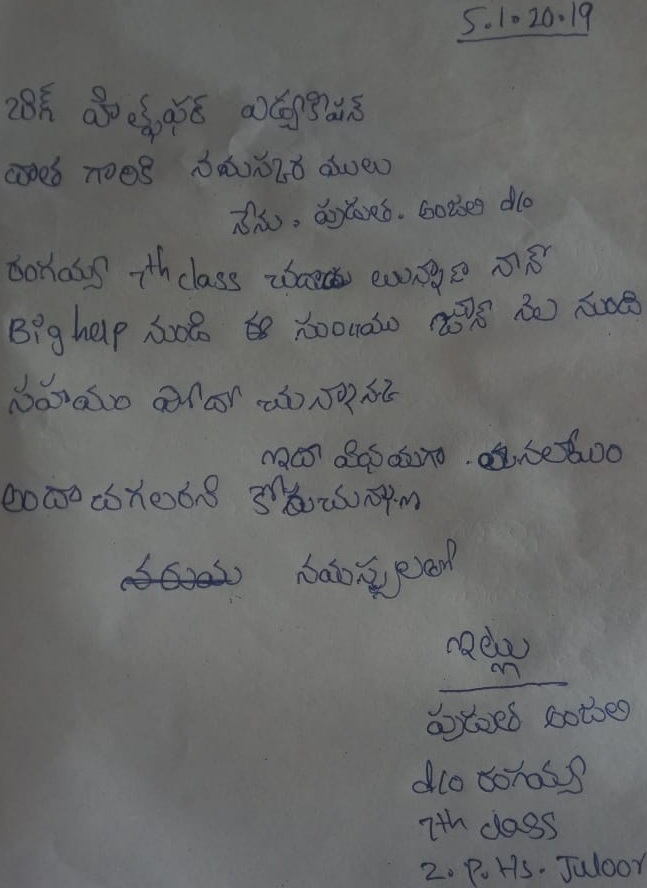 5.1.20.19
బిగ్ హెల్ప్ఫర్ ఎడ్యుకేషన్
దాత గారికి నమస్కారములు
నేను. పుడుత. అంజలి d/o
రంగయ్య 7th class చదువుతున్నాను నాకు
Big help నుండి ఈ జూన్ నెల నుండి
సహయం
ఇదా విధముగా
అందాచగలరని కోరుచున్నాను
నమస్సులతో
ఇట్లు
పుడుత అంజలి
d/o రంగయ్య
7th class
Z.P.Hs. Juloor